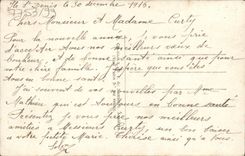 St Denis le 30 décembre 1915.
Cher Monsieur et Madame Curty
Pour la nouvelle année, je vous prie
d'accepter tous nos meilleurs vœux de
bonheur, et de bonne santé ainsi que pour
votre chère famille. J'espère que vous êtes
tous en bonne santé.
J'ai souvent de vos nouvelles par Mme
Mathieu qui est toujours en bonne santé
Présentez je vous prie nos meilleures
amitiés à Messieurs Curty, un bon baiser
à votre petite Marie Thérèse ainsi qu'à tous.